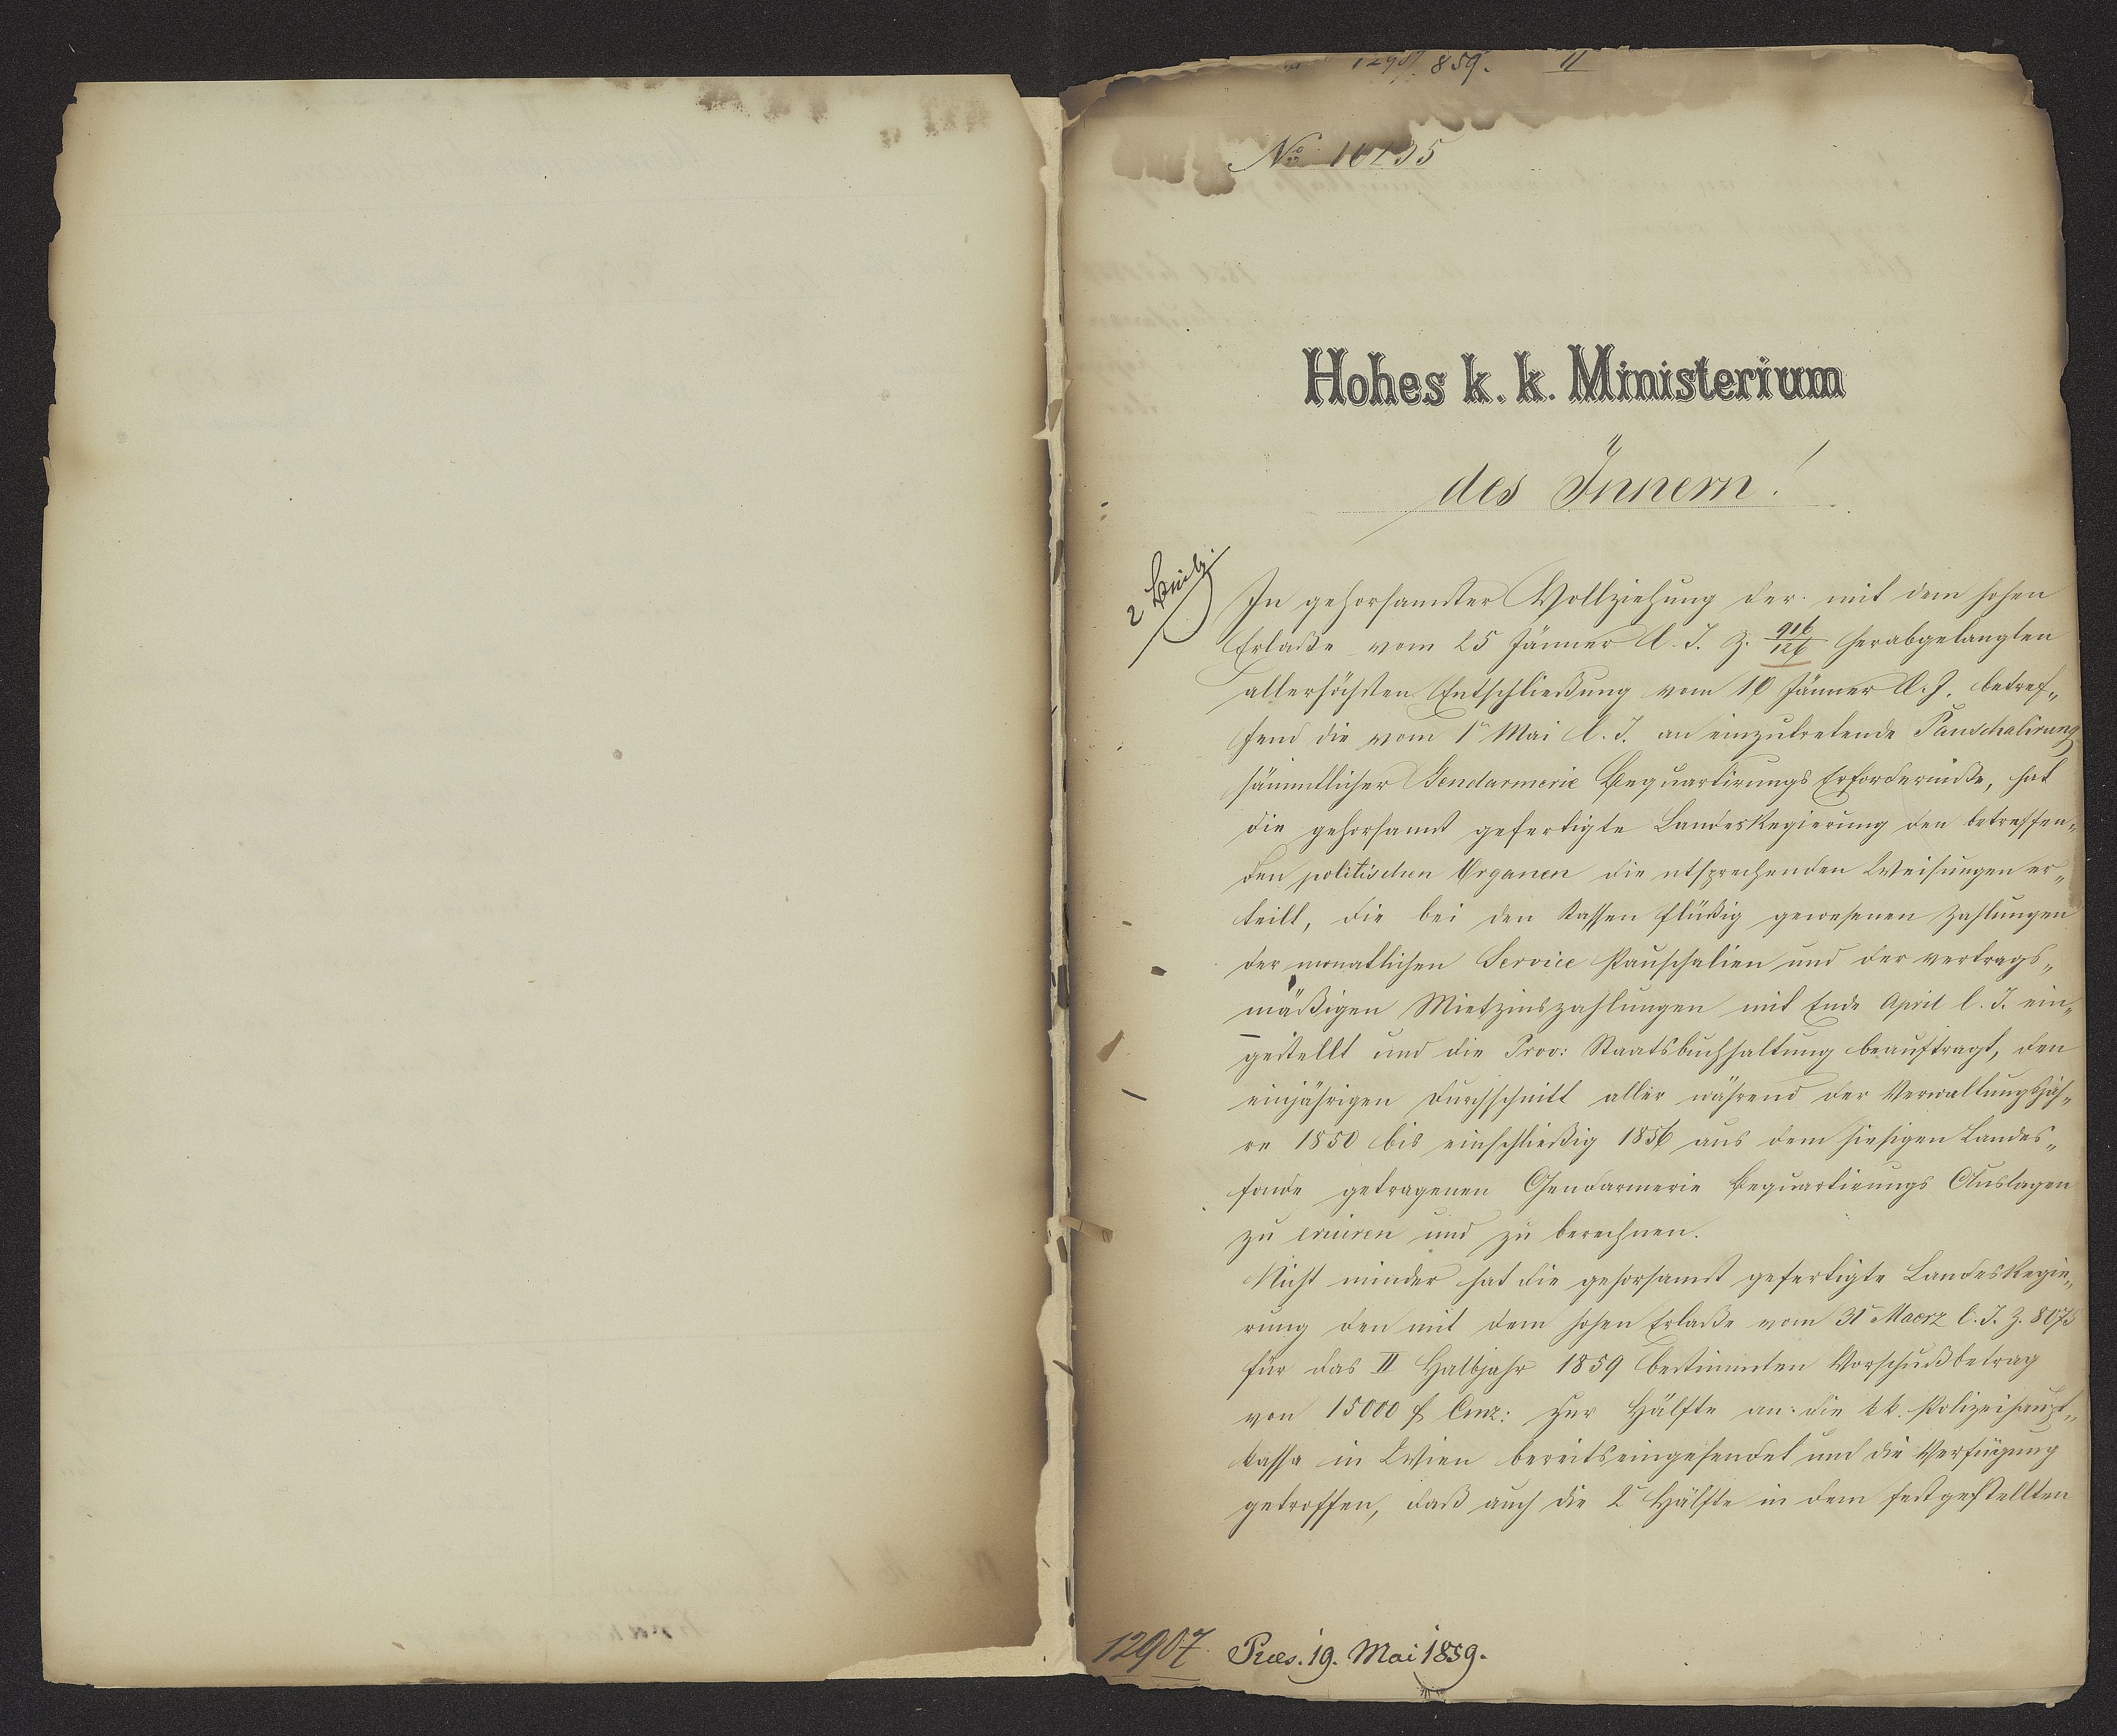 1290/859. II
No 10135
Hohes k. k. Ministerium
des Innern!
2 Beilg
In gehorsamster Vollziehung der mit dem hohen
Erlaße vom 25 Jänner l. J. Z. 916/126 herabgelangten
allerhöchsten Entschließung vom 10 Jänner l. J. betref„
fend die vom 1n Mai l. J. an einzutretende Pauschalirung
sämmtlicher Gendarmerie Bequartirungs Erforderniße, hat
die gehorsamst gefertigte LandesRegierung den betreffen„
den politischen Organen die entsprechenden Weisungen er„
teilt, die bei den Kassen flüßig gewesenen Zahlungen
der monatlichen Service Pauschalien und der vertrags„
mäßigen Mietzinszahlungen mit Ende April l. J. ein„
gestellt und die Prov: Staatsbuchhaltung beauftragt, den
einjährigen Durchschnitt aller während der Verwaltungsjah„
re 1850 bis einschließig 1856 aus dem hiesigen Landes„
fonde getragenen Gendarmerie Bequartirungs Auslagen
zu eruiren und zu berechnen.
Nicht minder hat die gehorsamst gefertigte LandesRegie„
rung den mit dem hohen Erlaße vom 31 Maerz l. J. Z. 8075
für das II Halbjahr 1859 bestimmten Vorschußbetrag
von 15000 f Cmz: zur Hälfte an die kk. Polizeihaupt„
kassa in Wien bereits eingesendet und die Verfügung
getroffen, daß auch die 2e Hälfte in dem festgestellten
12907. Præs. 19. Mai 1859.